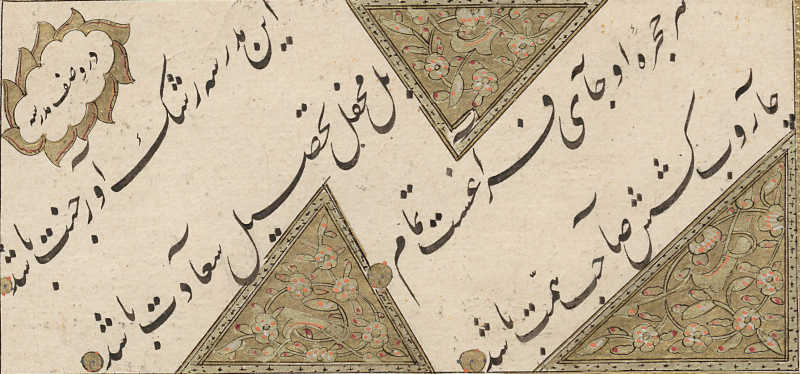 در وصف مدرسه
این مدرسه رشک آور جنت باشد
بل محفل تحصیل سعادت باشد
هر حجرهٔ او جای فراغست تمام
جاروب کشش صاحب همت باشد